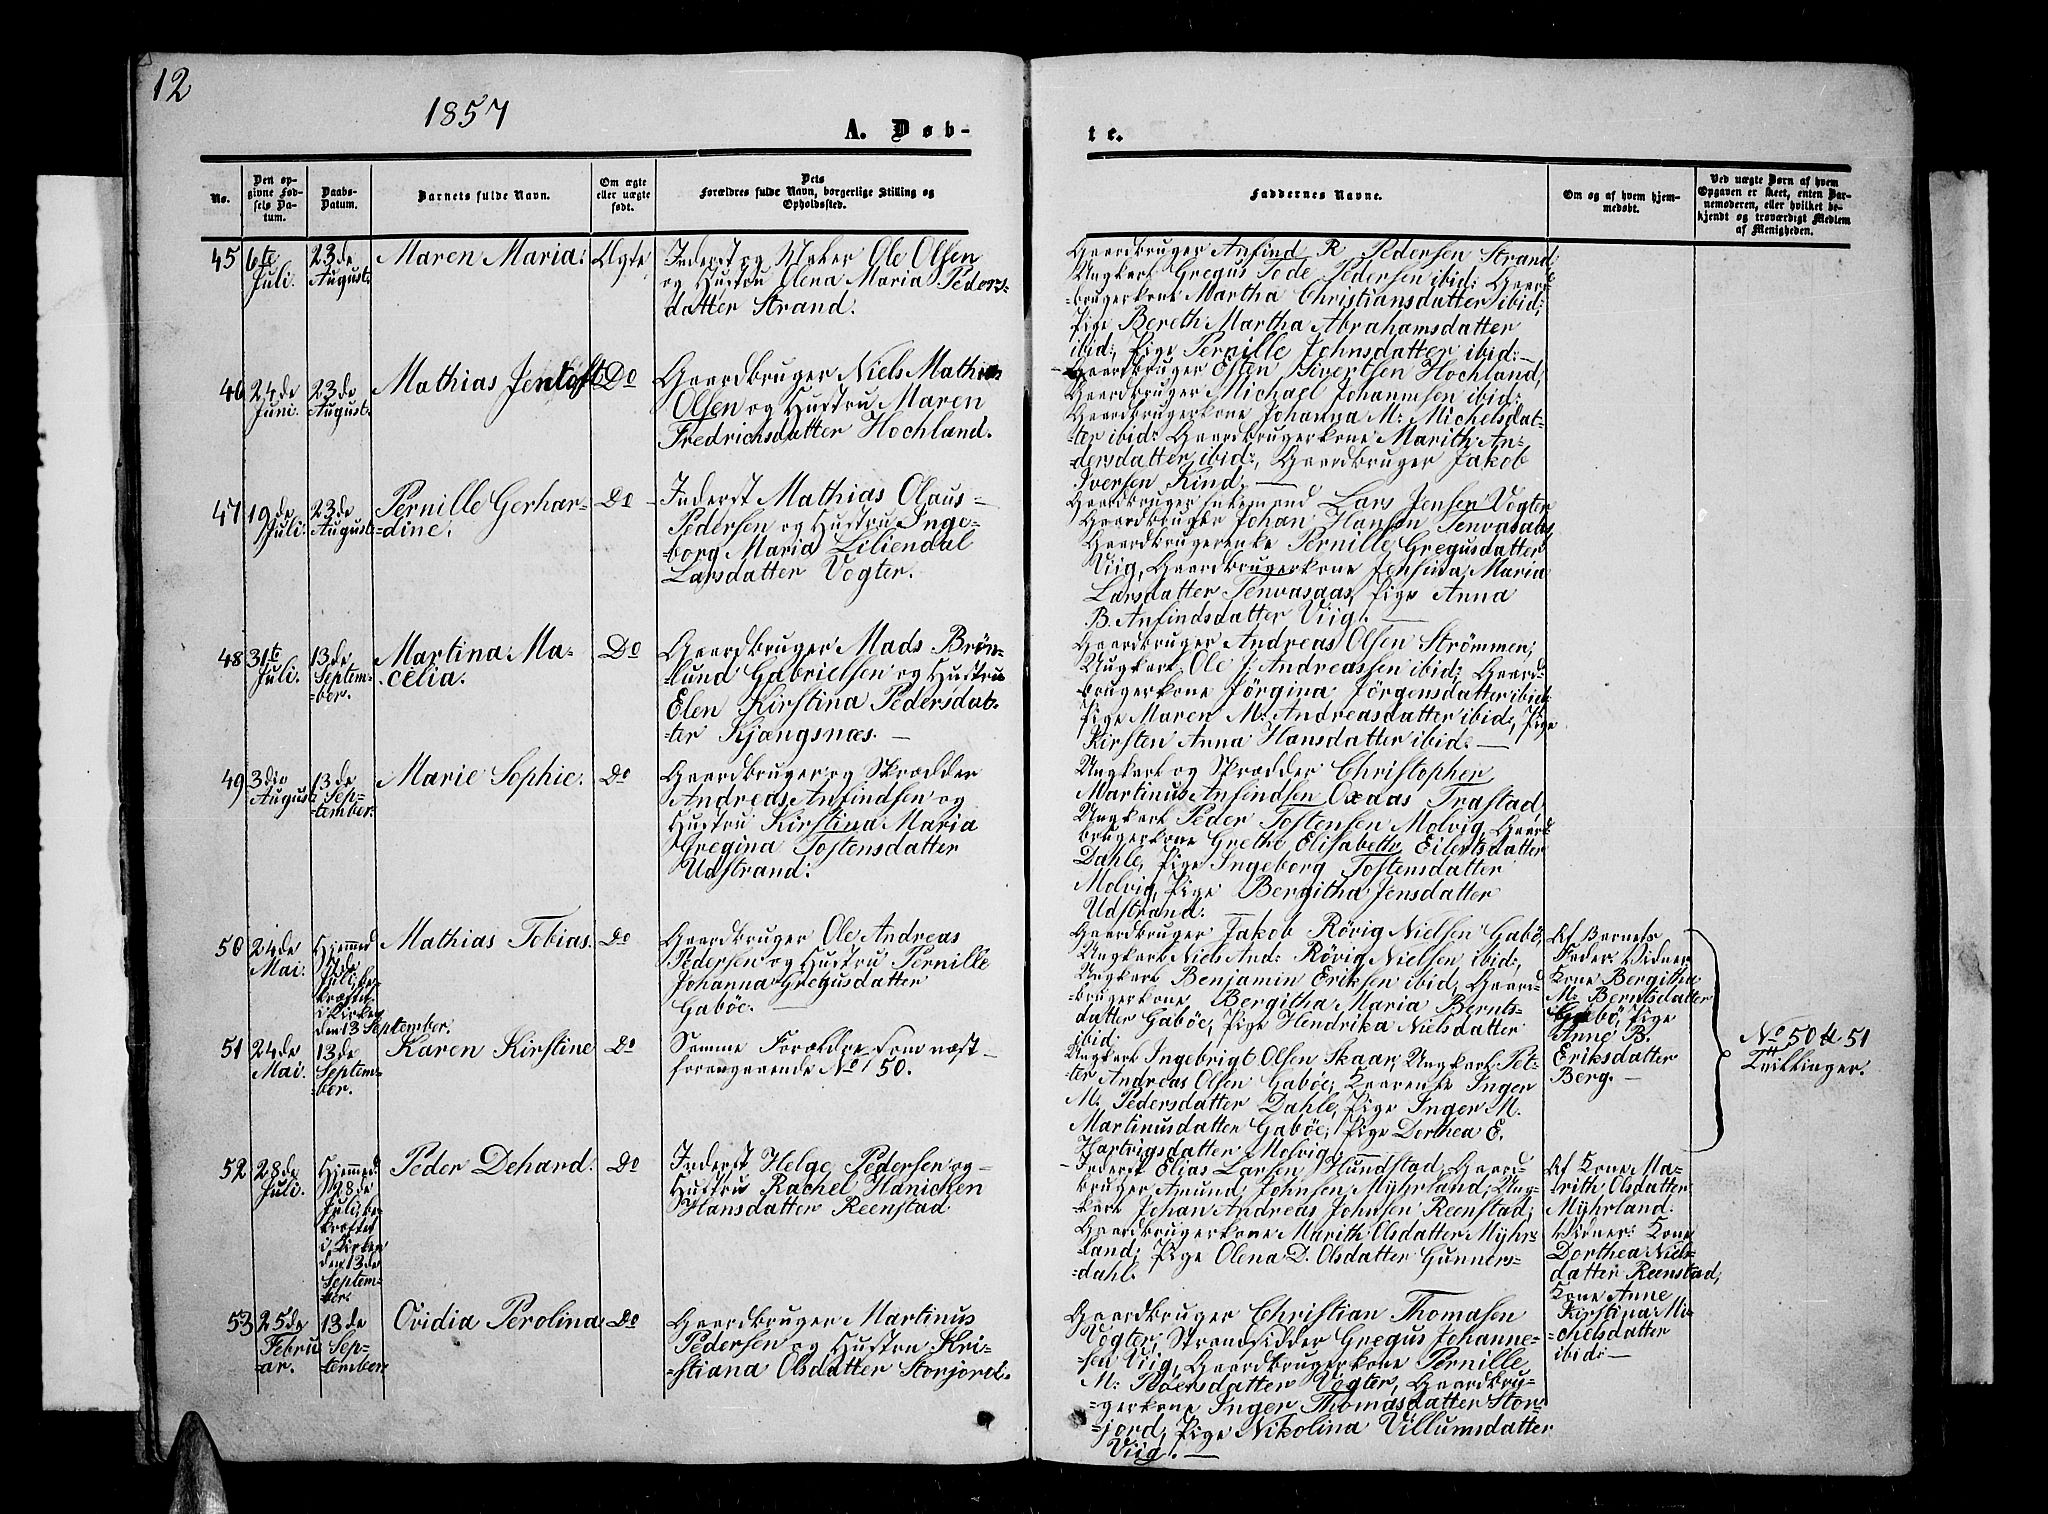 12
1857
A. Døb-
te.
No.
Den op-
givne Fød-
sels Da-
tum.
Daabs-
Datum.
Barnets fulde Navn.
Om ægte
eller uægte
født.
Dets
Forældres fulde Navn, borgerlige Stilling og
Opholdssted.
Faddernes Navne.
Om og af hvem hjem-
medøbt.
Ved uægte Børn af hvem
Opgaven er skeet, enten Bar-
nemoderen, eller hvilket be-
kjendt og troværdigt Medlem
af Menigheden.
45
6te
Juli.
23de
August:
Maren Maria:
Ægte
Inderst og Ole Olsen
og Hustru Olena Maria Peders-
datter Strand.
Gaardbruger Anfind R Pedersen Strand
Ungkarl Gregus Tode Pedersen ibid: Gaard-
brugerkone Martha Christiansdatter ibid:
Pige Bereth Martha Abrahamsdatter
ibid:, Pige Pernille Johnsdatter ibid:
46
24de
Juni.
23de
August:
Mathias Jentoft:
Do
Gaardbruger Niels Mathias
Olsen og Hustru Maren
Fredrichsdatter Hochland.
Gaardbruger Esten Sivertsen Hochland,
Gaardbruger Michael Johannsen ibid:
Gaardbrugerkone Johanna M: Michelsdat-
ter ibid: Gaardbrugerkone Marith An-
dersdatter ibid:, Gaardbruger Jakob
Iversen Kind.
47
19de
Juli:
23de
August:
Pernille Gerhar-
dine.
Do
Inderst Mathias Olaus
Pedersen og Hustru Inge-
borg Maria Liliendal
Larsdatter Vogter.
Gaardbruger Enkemand Lars Jensen Vogter
Gaardbruger Johan Hansen Tenvasaas,
Gaardbrugerenke Pernille Gregusdatter
Viig, Gaardbrugerkone Jensina Maria
Larsdatter Tenvasaas, Pige Anna
B. Anfindsdatter Viig.
48
31te
Juli.
13de
Septem-
ber.
Martina Ma-
celia.
Do
Gaardbruger Mads Brøn-
lund Gabrielsen og Hustru
Elen Kirstina Pedersdat-
ter Kjængsnæs.
Gaardbruger Andreas Olsen Strömmen;
Ungkarl Ole J: Andreassen ibid: Gaard-
brugerkone Jörgina Jörgensdatter ibid:
Pige Maren M: Andreasdatter ibid:, Pige
Kirsten Anna Hansdatter ibid:
49
3die
August:
13de
Sep-
tember.
Marie Sophie.
Do
Gaardbruger og Skrædder
Andreas Anfindsen og
Hustru Kirstina Maria
Gregina Tostensdatter
Udstrand:
Ungkarl og Skrædder Christopher
Martinus Anfindsen Oxaas Trastad,
Ungkarl Peder Tostensen Molvig, Gaard-
brugerkone Grethe Elisabeth Eilertsdatter
Dahle, Pige Ingeborg Tostensdatter
Molvig, Pige Bergitha Jensdatter
Udstrand.
50
24de
Mai:
Hjemmed.
Juli, be-
kræftet
i Kirken
den 13 September.
Mathias Tobias.
Do
Gaardbruger Ole Andreas
Pedersen og Hustru Pernille
Johanna Gregusdatter
Gaböe.
Gaardbruger Jakob Rørig Nielsen Gabö,
Ungkarl Niels And: Rörig Nielsen ibid:,
Ungkarl Benjamin Eriksen ibid, Gaard-
brugerkone Bergitha Maria Bernts-
datter Gaböe, Pige Hendrika Nielsdatter
ibid.
Af Barnets
Fader: Vidner
Kone Bergitha
M: Berntsdatter
Gabö, Pige
Anne B.
Eriksdatter
Berg.
51
24de
Mai.
13de
Septem-
ber.
Karen Kirstine
Do
Samme Forældre som næst-
foregaaende No 50.
Ungkarl Ingebrigt Olsen Skaar, Ungkarl Pet-
ter Andreas Olsen Gaböe, Inger
M. Pedersdatter Dahle, Pige Inger M.
Martinusdatter Gaböe, Pige Dorthea E.
Hartvigsdatter Molvig.
No 50 & 51
Tvillinger.
52
28de
Juli.
Hjemmed.
28de
Juli, be-
kræftet
i Kirken
den 13de
Septem-
ber.
Peder Dehard.
Do
Inderst Helge Pedersen og
Hustru Rachel Hanicken
Hansdatter Reenstad
Inderst Elias Larsen Hundstad, Gaard-
bruger Amund Johnsen Myhrland, Ung-
karl Johan Andreas Johnsen Reenstad;
Gaardbrugerkone Marith Olsdatter Myhr-
land; Pige Olena D. Olsdatter Gunners-
dahl.
Af Kone Ma-
rith Olsdatter
Myhrland.
Vidner: Kone
Dorthea Niels-
datter Reenstad,
Kone Anne
Kirstina Mi-
chelsdatter
ibid:
53
25de
Febru
ar.
13de
Sep-
tember
Ovidia Perolina
Do
Gaardbruger Martinus
Pedersen og Hustru Kri-
stiana Olsdatter Storjord.
Gaardbruger Christian Thomasen
Vogter, Strandsidder Gregus Johanne-
sen Viig, Gaardbrugerkone Pernille
M: Vogter, Gaardbru-
gerkone Inger Thomasdatter Stor-
jord, Pige Nikolina Villumsdatter
Viig.